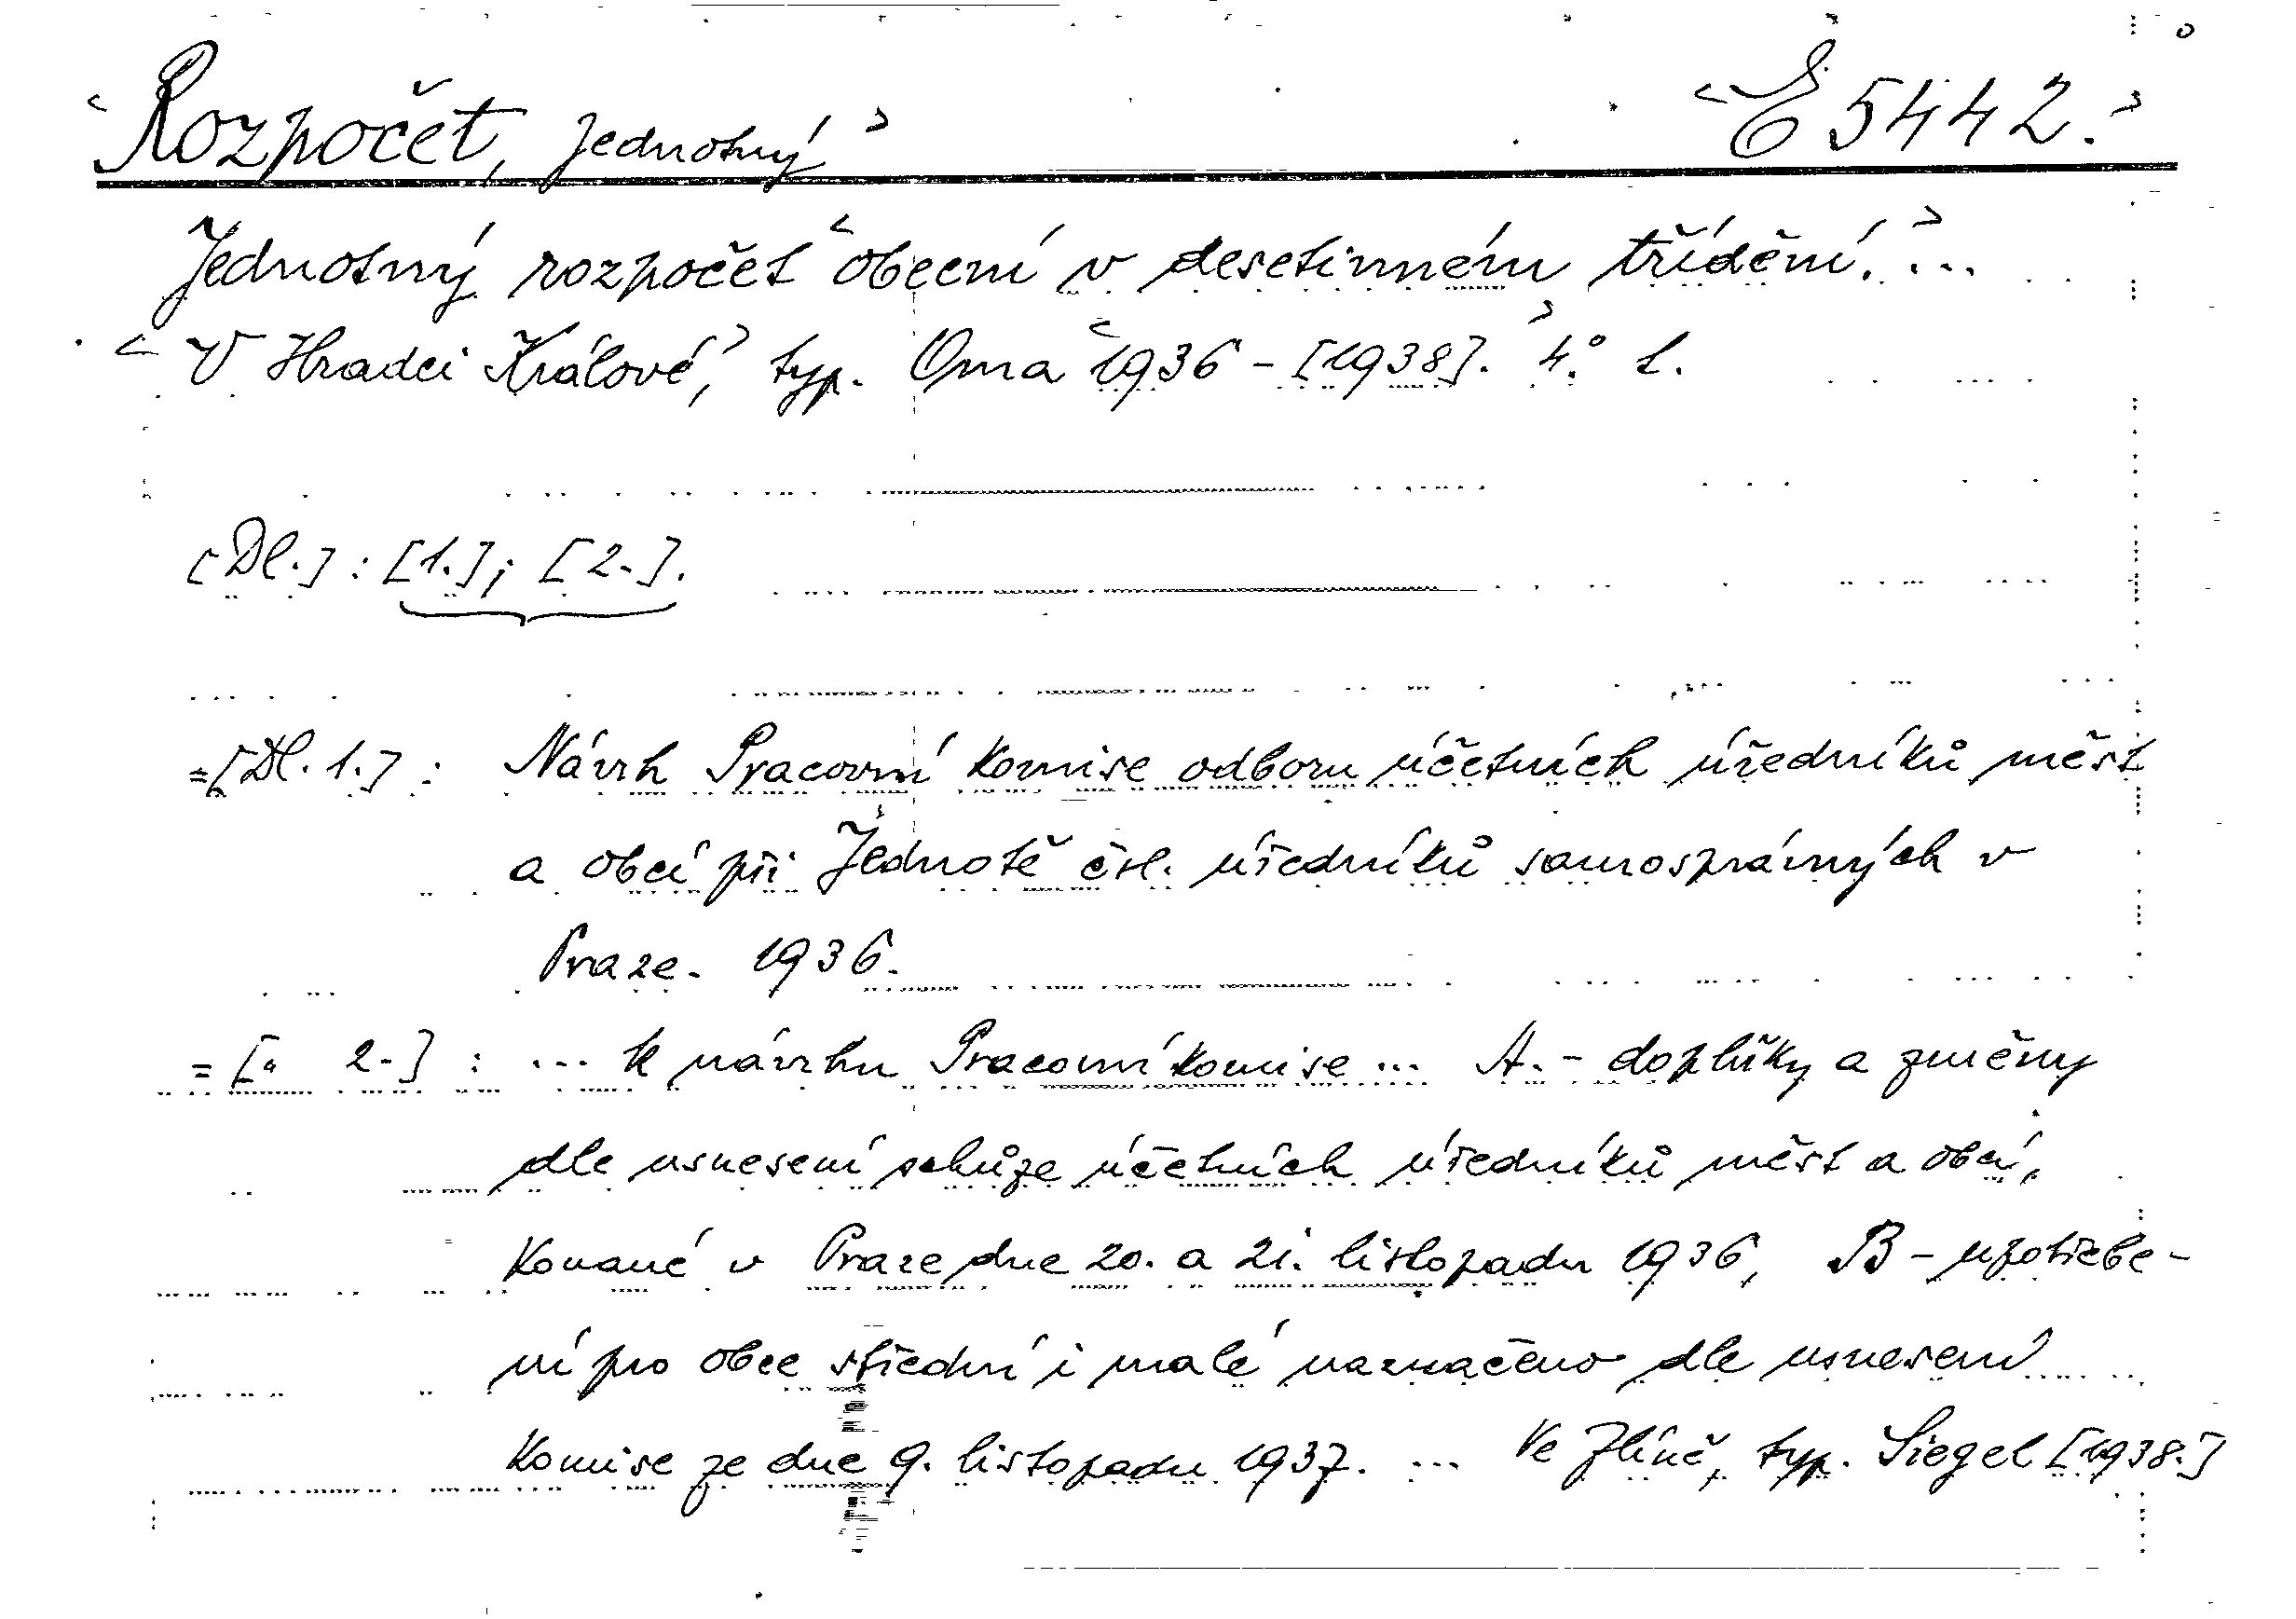 <Rozpočet, jednotný> <E 5442.>
Jednotný rozpočet <obecní v desetinném třídění.> ...
<V Hradci Králové,> typ. Oma <1936 - [1938].> 4.° l.
[Dl.] : [1.]; [2.].
=[Dl. 1.] : Návrh Pracovní komise odboru účetních úředníků měst
a obcí při Jednotě čsl. úředníků samosprávných v
Praze. 1936.
= [" 2.] : ... k návrhu Pracovní komise ... A. - doplňky a změny
dle usnesení schůze účetních úředníků měst a obcí,
konané v Praze dne 20. a 21. listopadu 1936, B - upotřebe-
ní pro obce střední i malé naznačeno dle usnesení
komise ze dne 9. listopadu 1937. ... Ve Zlíně, typ. Siegel [1938.]